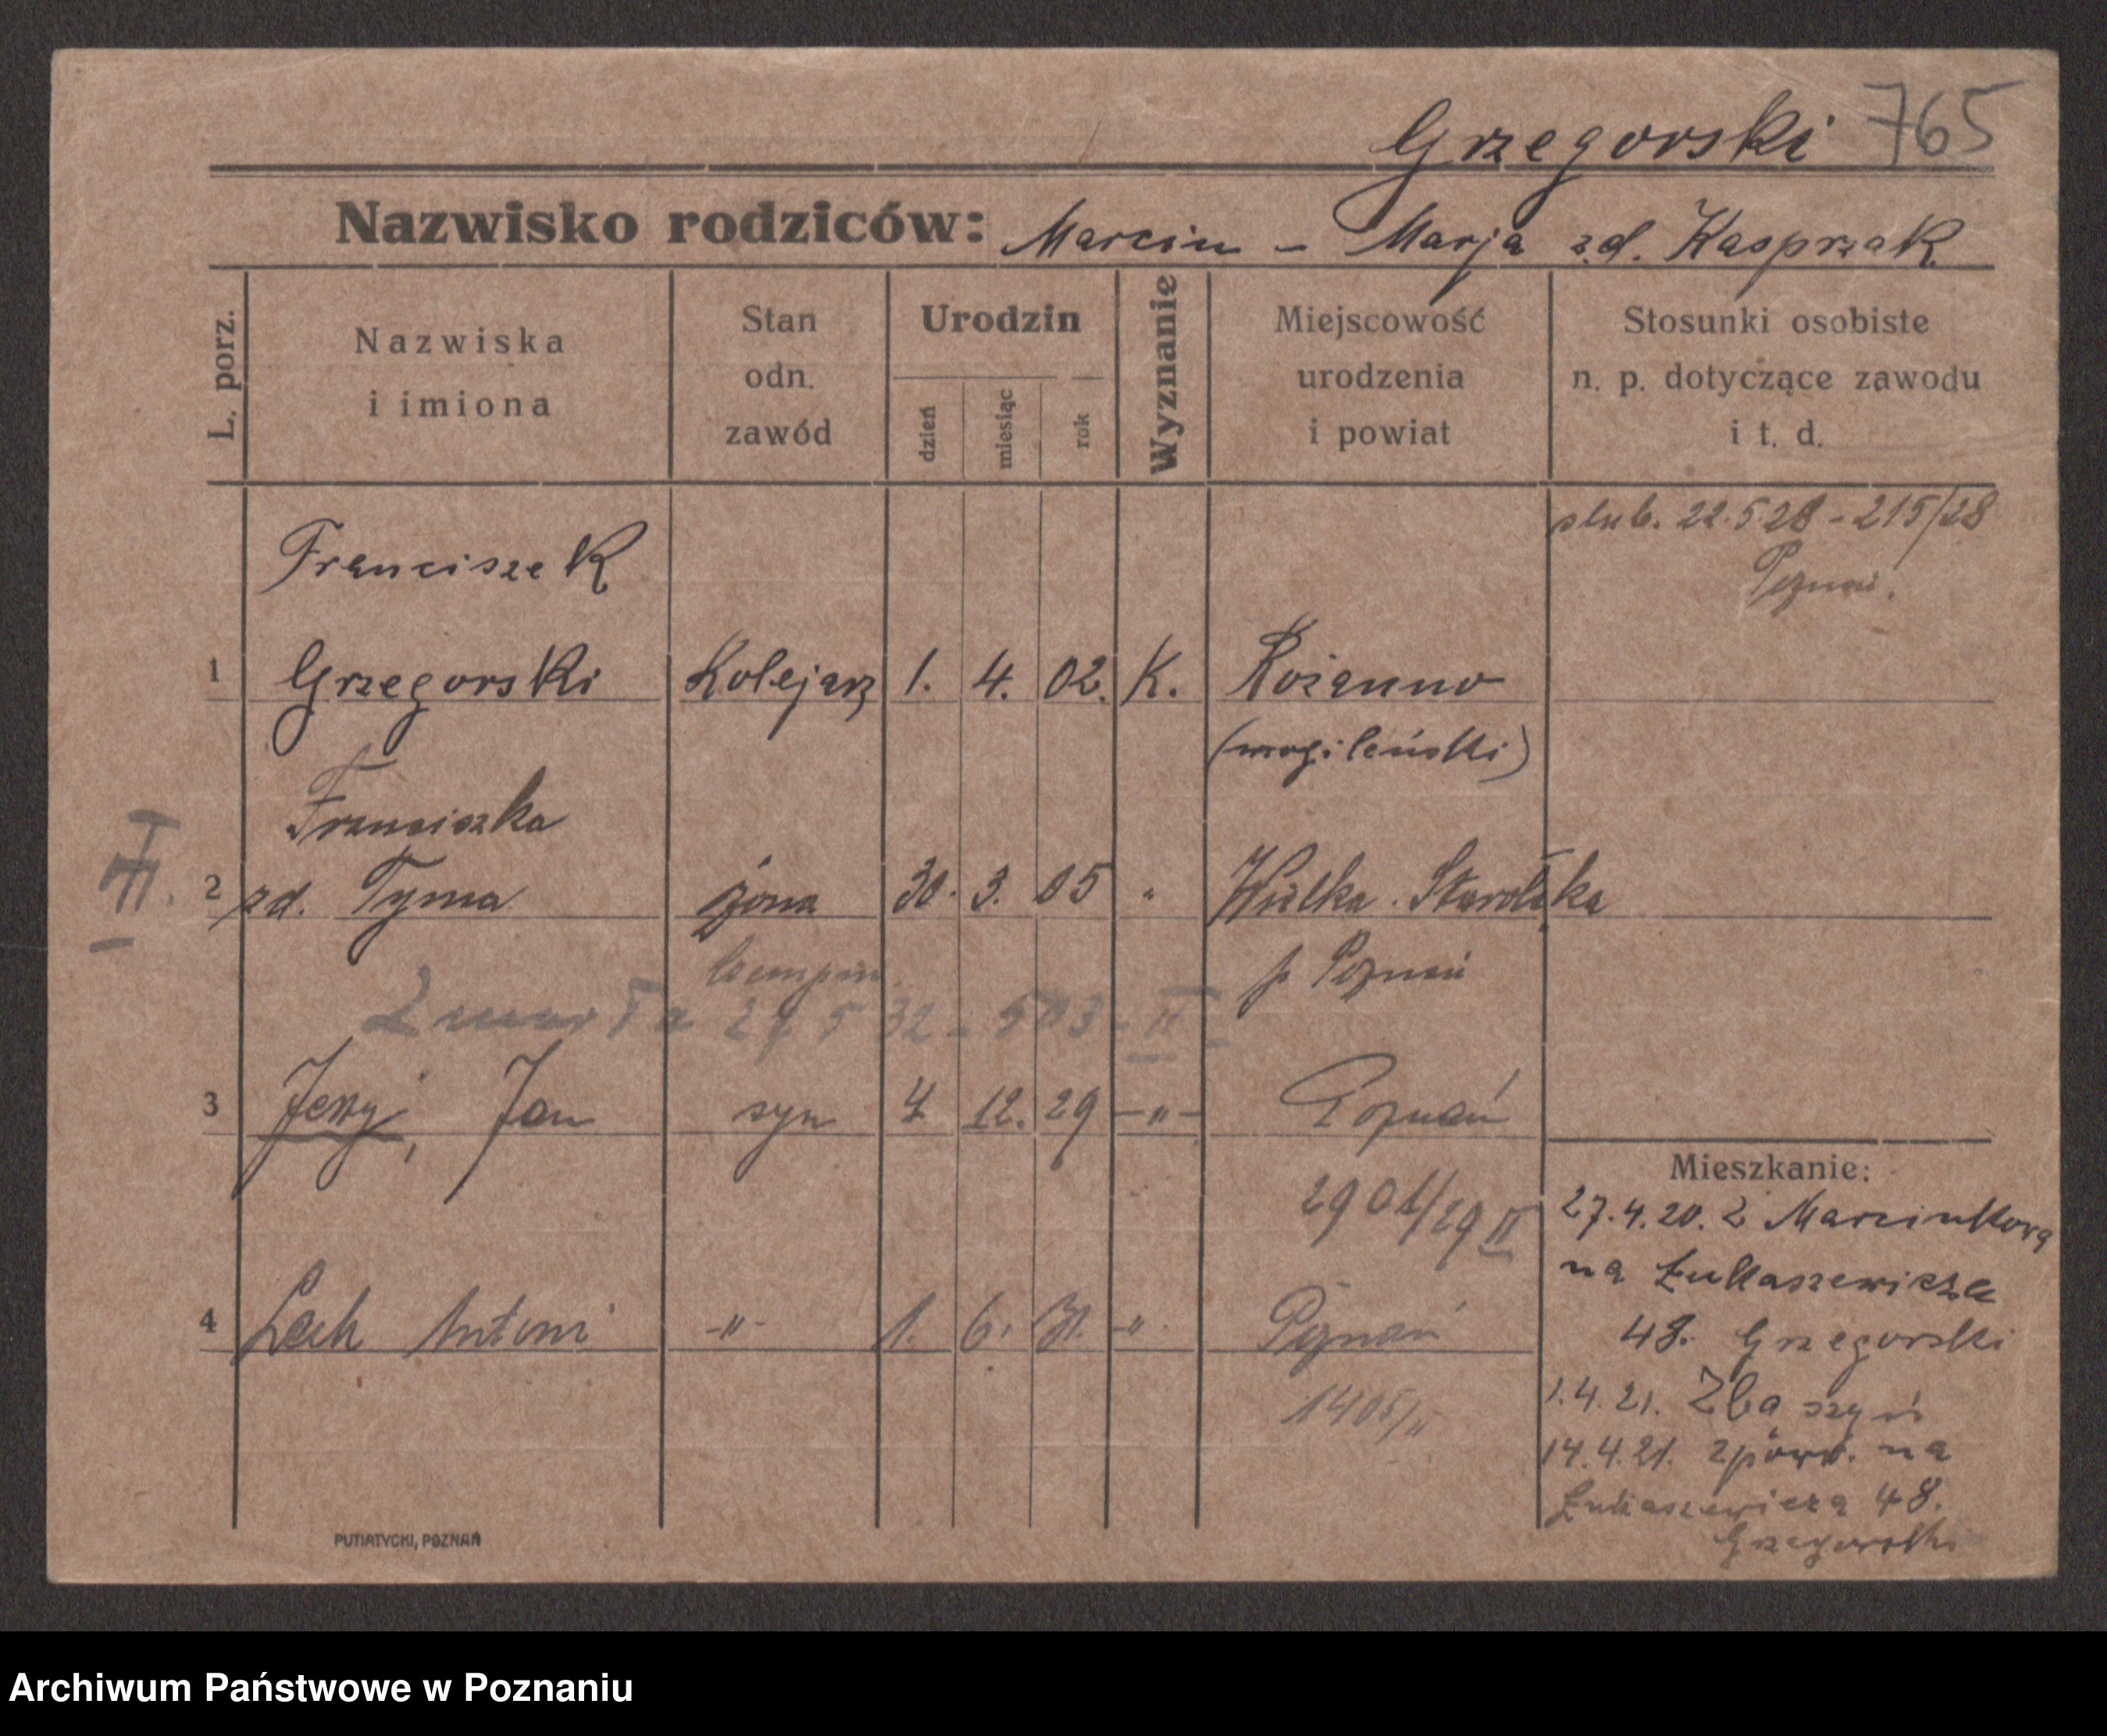 Grzegorski 765
Nazwisko rodziców: Marcin - Marja zd. Kasprzak
L. porz.
Nazwiska
i imiona
Stan
odn.
zawód
Urodzin
dzień
miesiąc
rok
Wyznanie
Miejscowość
urodzenia
i powiat
Stosunki osobiste
n. p. dotyczące zawodu
i t. d.
ślub. 22.5.28 - 215/28
Poznań.
Franciszek
1 Grzegorski Kolejarz 1. 4. 02. K.
(mogileński)
Franciszka
2 zd. Tyma żona 30. 3. 05 "
p Poznań
Zmarła
3 Jerzy, Jan syn 4 12. 29 - " - Poznań
29 II
4 Lech Antoni - " - 1. 6. 31. - " - Poznań
Mieszkanie:
27.4.20. z Marcinkowa
na Łukaszewicza
48. Grzegorski
1.4.21. Zbąszyń
14.4.21. zpowr. na
Łukaszewicza 48.
Grzegorski
PUTIATYCKI, POZNAŃ
Archiwum Państwowe w Poznaniu